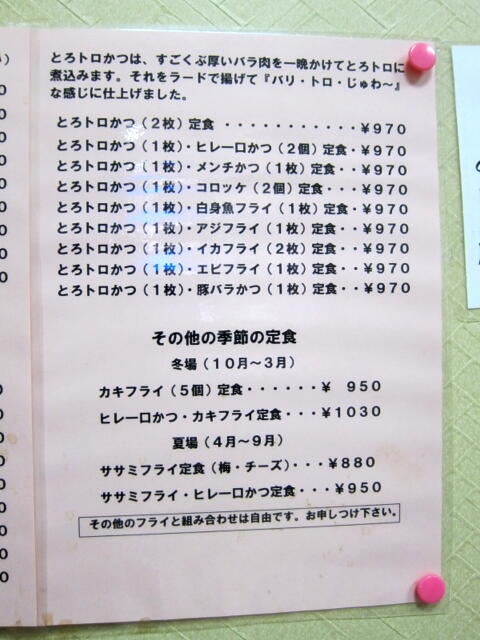 とろトロかつは、すごくぶ厚いバラ肉を一晩かけてとろトロに
煮込みます。それをラードで揚げて『バリ・トロ・じゅわ～』
な感じに仕上げました。
とろトロかつ（2枚）定食 ・・・・・・・・・・・・￥970
とろトロかつ（1枚）・ヒレ一口かつ（2個）定食・￥970
とろトロかつ（1枚）・メンチかつ（1枚）定食・・￥970
とろトロかつ（1枚）・コロッケ（2個）定食・・・￥970
とろトロかつ（1枚）・白身魚フライ（1枚）定食・￥970
とろトロかつ（1枚）・アジフライ（1枚）定食・・￥970
とろトロかつ（1枚）・イカフライ（2枚）定食・・￥970
とろトロかつ（1枚）・エビフライ（1枚）定食・・￥970
とろトロかつ（1枚）・豚バラかつ（1枚）定食・・￥970
その他の季節の定食
冬場（10月～3月）
カキフライ（5個）定食・・・・・・￥ 950
ヒレ一口かつ・カキフライ定食・・・￥1030
夏場（4月～9月）
ササミフライ定食（梅・チーズ）・・・￥880
ササミフライ・ヒレ一口かつ定食・・・￥950
その他のフライと組み合わせは自由です。お申しつけ下さい。